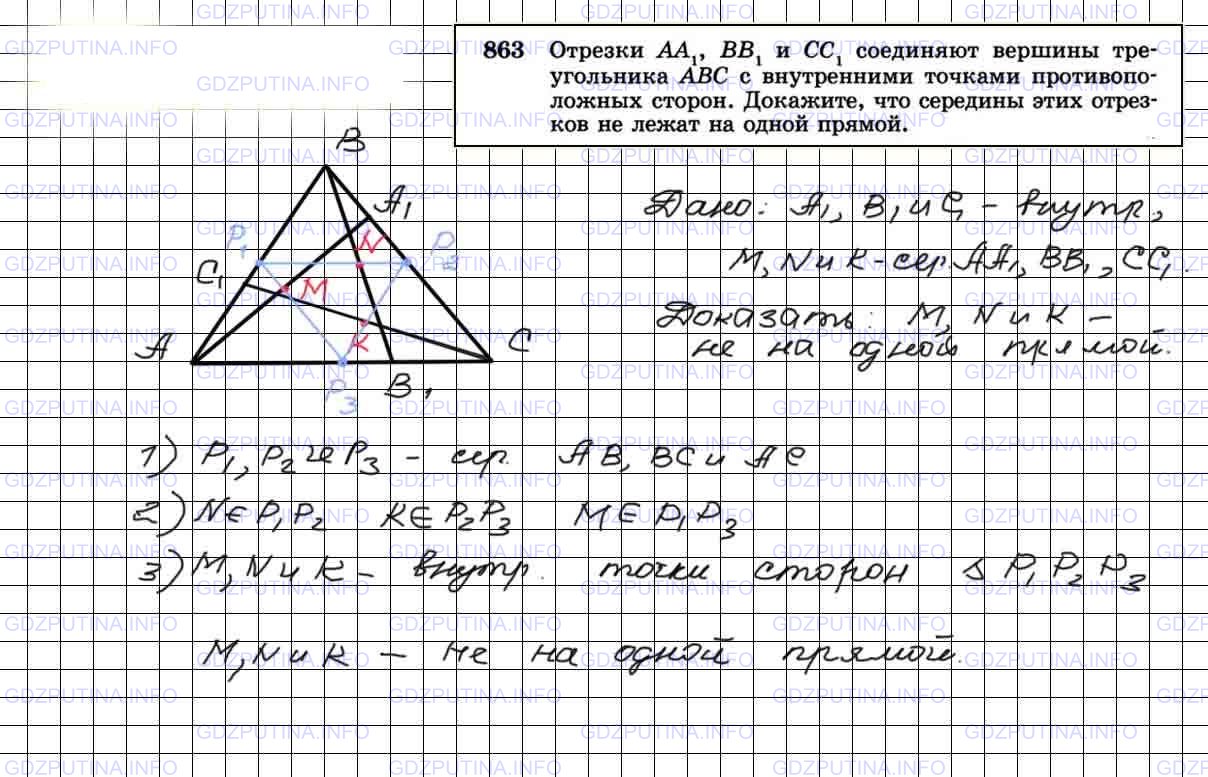 863 Отрезки AA₁, BB₁ и CC₁ соединяют вершины тре-
угольника ABC с внутренними точками противопо-
ложных сторон. Докажите, что середины этих отрез-
ков не лежат на одной прямой.
B
A₁
P₁
N
P₂
C₁
M
K
A
C
P₃
B₁
Дано: A₁, B₁ и C₁ - внутр,
M, N и K - сер. AA₁, BB₁, CC₁.
Доказать: M, N и K -
не на одной прямой.
1) P₁, P₂ и P₃ - сер. AB, BC и AC
2) N∈P₁P₂ K∈P₂P₃ M∈P₁P₃
3) M, N и K - внутр. точки сторон Δ P₁P₂P₃
M, N и K - не на одной прямой.
GDZPUTINA.INFO